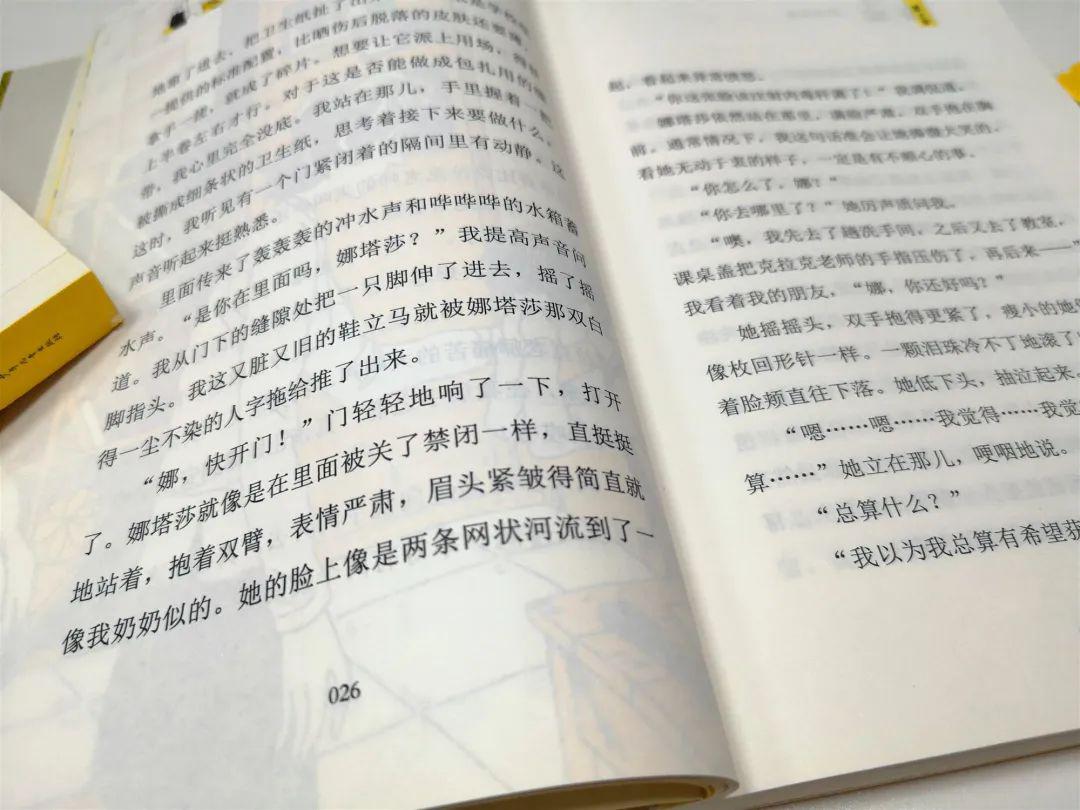 把卫生纸扯了出
提供的标准配置，比晒伤后脱落的皮肤还要薄，
拿手一搓，就成了碎片。想要让它派上用场，得
上半卷左右才行。对于这是否能做成包扎用的绷
带，我心里完全没底。我站在那儿，手里握着一把
被撕成细条状的卫生纸，思考着接下来要做什么，
这时，我听见有一个门紧闭着的隔间里有动静。这
声音听起来挺熟悉。
里面传来了轰轰轰的冲水声和哗哗哗的水箱蓄
水声。“是你在里面吗，娜塔莎？”我提高声音问
道。我从门下的缝隙处把一只脚伸了进去，摇了摇
脚指头。我这又脏又旧的鞋立马就被娜塔莎那双白
得一尘不染的人字拖给推了出来。
“娜，快开门！”门轻轻地响了一下，打开
了。娜塔莎就像是在里面被关了禁闭一样，直挺挺
地站着，抱着双臂，表情严肃，眉头紧皱得简直就
像我奶奶似的。她的脸上像是两条网状河流到了一
026
起，看起来异常愤怒。
“你这张脸该注射肉毒杆菌了！”我调侃道。
娜塔莎依然站在那里，满脸严肃，双手抱在胸
前。通常情况下，我这句话准会让她捧腹大笑的，
看她无动于衷的样子，一定是有不顺心的事。
“你怎么了，娜？”
“你去哪里了？”她厉声质问我。
“噢，我先去了趟洗手间，之后又去了教室，
课桌盖把克拉克老师的手指压伤了，再后来——”
我看着我的朋友，“娜，你还好吗？”
她摇摇头，双手抱得更紧了，瘦小的她
像枚回形针一样。一颗泪珠冷不丁地滚了
着脸颊直往下落。她低下头，抽泣起来。
“嗯……嗯……我觉得……我觉
算……”她立在那儿，哽咽地说。
“总算什么？”
“我以为我总算有希望获